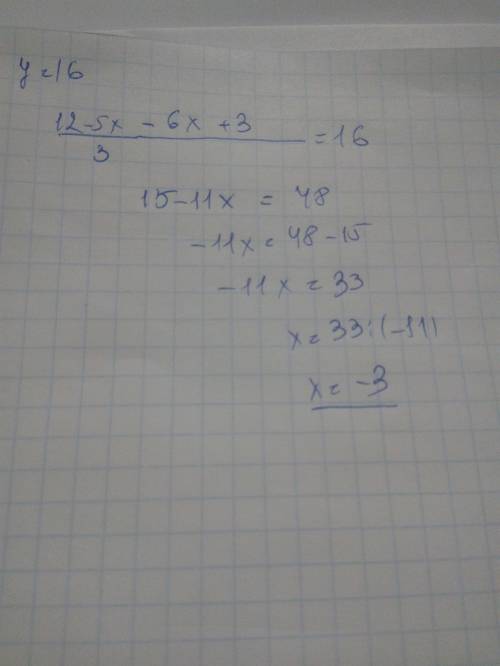 y=16
12-5x - 6x +3 = 16
3
15-11x = 48
-11x = 48-15
-11x = 33
x = 33:(-11)
x = -3